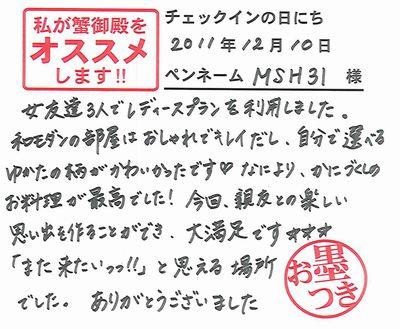 私が蟹御殿を
オススメ
します!!
チェックインの日にち
2011年12月10日
ペンネーム MSH31 様
女友達3人でレディースプランを利用しました。
和モダンの部屋はおしゃれでキレイだし、自分で選べる
ゆかたの柄がかわいかったです♡なにより、かにづくしの
お料理が最高でした!今回、親友との楽しい
思い出を作ることができ、大満足です★★★
「また来たいっっ!!」と思える場所
でした。ありがとうございました
お墨つき